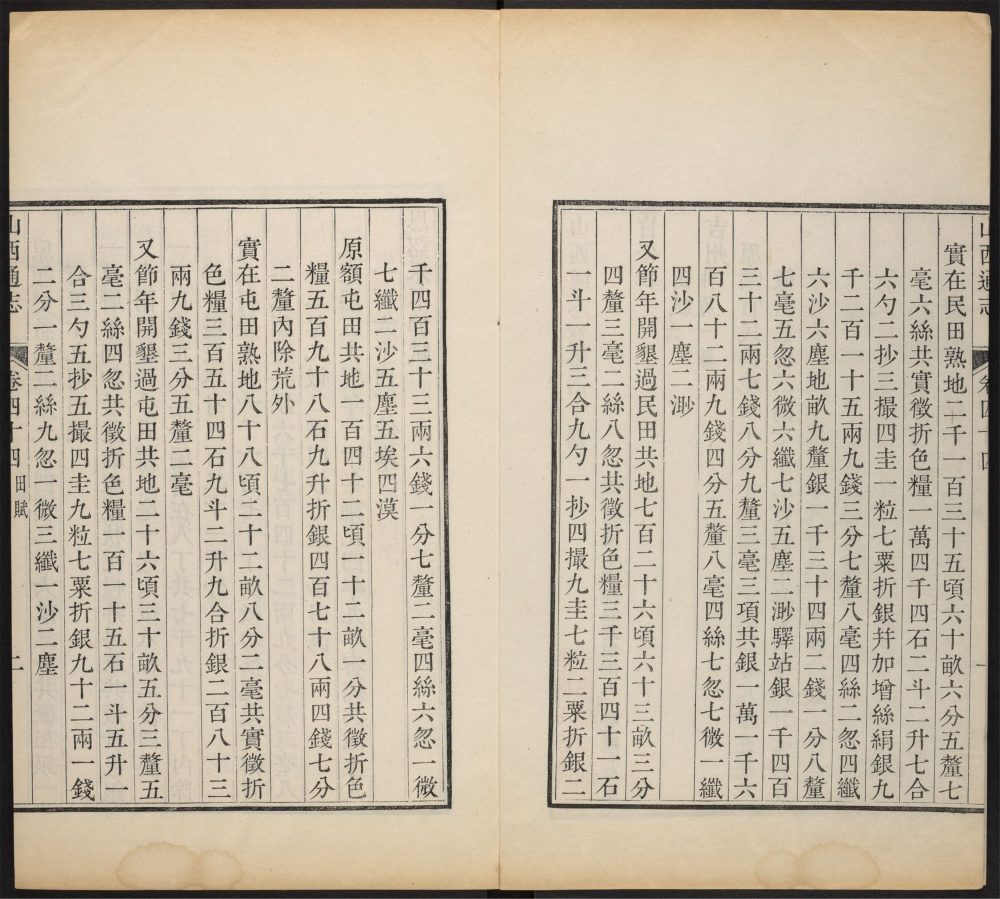 山西通志
實在民田熟地二千一百三十五頃六十畝六分五釐七
毫六絲共實徵折色糧一萬四千四石二斗二升七合
六勺二抄三撮四圭一粒七粟折銀幷加增絲絹銀九
千二百一十五兩九錢三分七釐八毫四絲二忽四纖
六沙六塵地畝九釐銀一千三十四兩二錢一分八釐
七毫五忽六微六纖七沙五塵二渺驛站銀一千四百
三十二兩七錢八分九釐三毫三項共銀一萬一千六
百八十二兩九錢四分五釐八毫四絲七忽七微一纖
四沙一塵二渺
又節年開墾過民田共地七百二十六頃六十三畝三分
四釐三毫二絲八忽共徵折色糧三千三百四十一石
一斗一升三合九勺一抄四撮九圭七粒二粟折銀二
千四百三十三兩六錢一分七釐二毫四絲六忽一微
七纖二沙五塵五埃四漠
原額屯田共地一百四十二頃一十二畝一分共徵折色
糧五百九十八石九升折銀四百七十八兩四錢七分
二釐內除荒外
實在屯田熟地八十八頃二十二畝八分二毫共實徵折
色糧三百五十四石九斗二升九合折銀二百八十三
兩九錢三分五釐二毫
又節年開墾過屯田共地二十六頃三十畝五分三釐五
毫二絲四忽共徵折色糧一百一十五石一斗五升一
合三勺五抄五撮四圭九粒七粟折銀九十二兩一錢
二分一釐二絲九忽一微三纖一沙二塵
山西通志 卷四十四 田賦 二